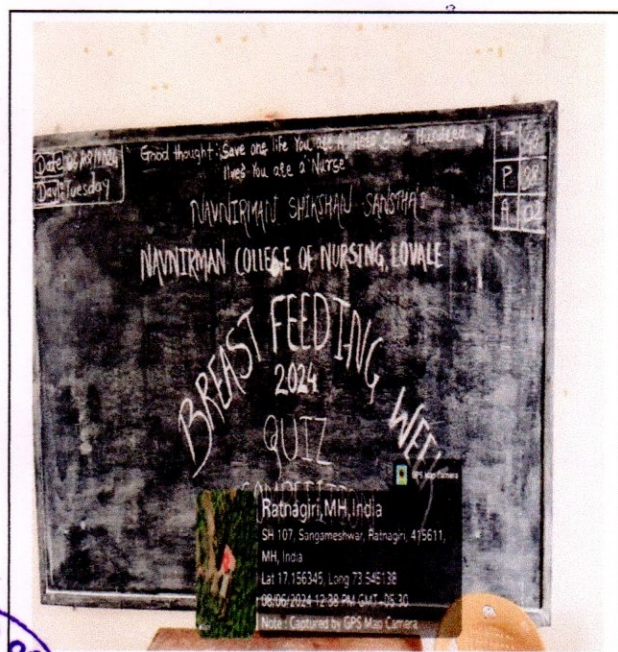 Date 06/08/2024
Day: Tuesday
Good thought: Save one life You are A Hero Save Hundred
lives You are a Nurse
T 40
P 38
A 02
NAVNIRMAN SHIKSHAN SANSTHA's
NAVNIRMAN COLLEGE OF NURSING, LOVALE
BREAST FEEDING WEEK
2024
QUIZ
GPS Map Camera
Ratnagiri, MH, India
SH 107, Sangameshwar, Ratnagiri, 415611,
MH, India
Lat 17.156345, Long 73.546138
08/06/2024 12:38 PM GMT+05:30
Note : Captured by GPS Map Camera